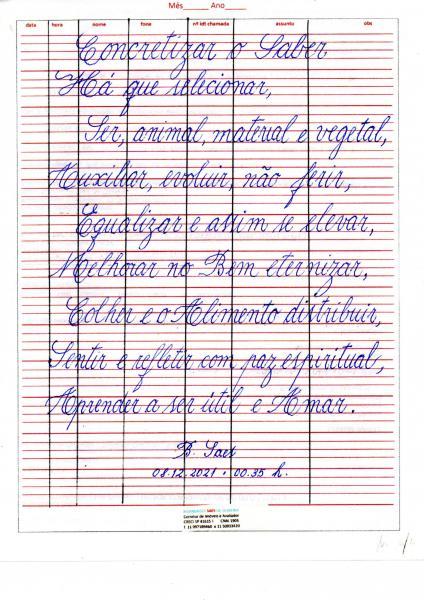 Mês____ Ano____
data hora nome fone nº idt chamada assunto obs
Concretizar o Saber
Há que selecionar,
Ser, animal, material e vegetal,
Auxiliar, evoluir, não ferir,
Equalizar e assim se elevar,
Melhorar no Bem eternizar,
Colher e o Alimento distribuir,
Sentir e refletir com paz espiritual,
Aprender a ser útil e Amar.
B. Saes
08.12.2021 • 00.35 h.
Corretor de Imóveis e Avaliador